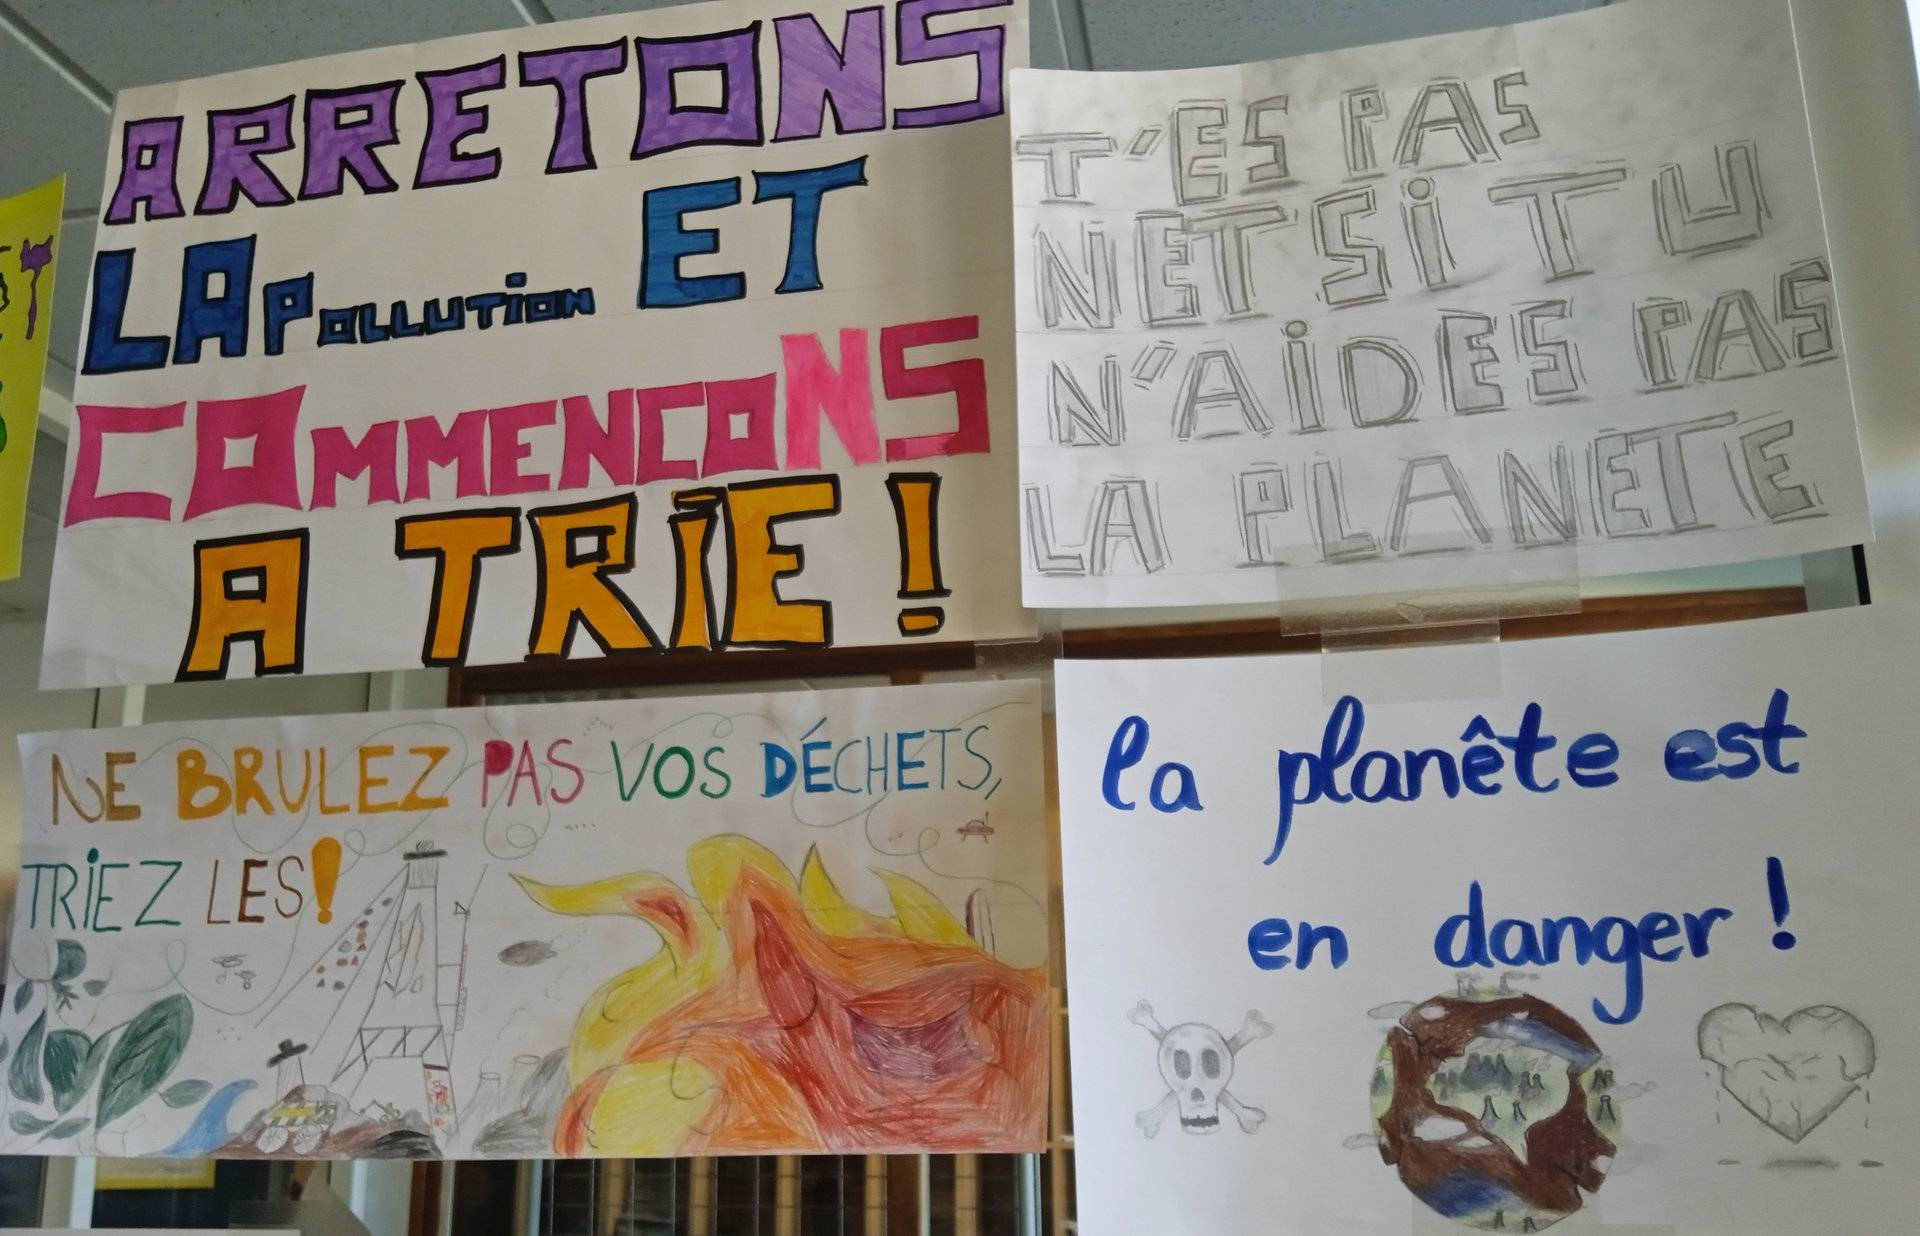 ARRETONS
LA POLLUTiON ET
COMMENCONS
A TRiE !
T'ES PAS
NET Si TU
N'AiDES PAS
LA PLANETE
NE BRULEZ PAS VOS DÉCHETS,
TRiEZ LES !
la planête est
en danger !